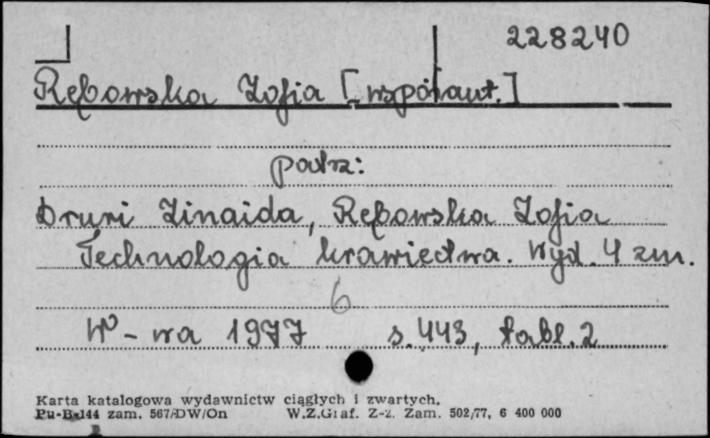 228240
Rębowska Zofia [współaut.]
patrz:
Druri Zinaida, Rębowska Zofia
Technologia krawiectwa. Wyd. 4 zm.
6
W-wa 1977 s. 443, tabl. 2
Karta katalogowa wydawnictw ciągłych i zwartych.
Pu-B-144 zam. 567/DW/On W.Z.Graf. Z-z. Zam. 502/77, 6 400 000